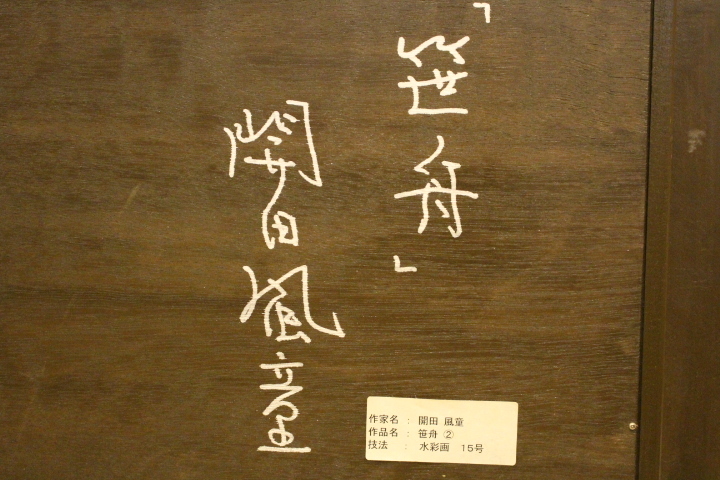 「笹舟」
開田風童
作家名 : 開田 風童
作品名 : 笹舟 ②
技法 : 水彩画 15号